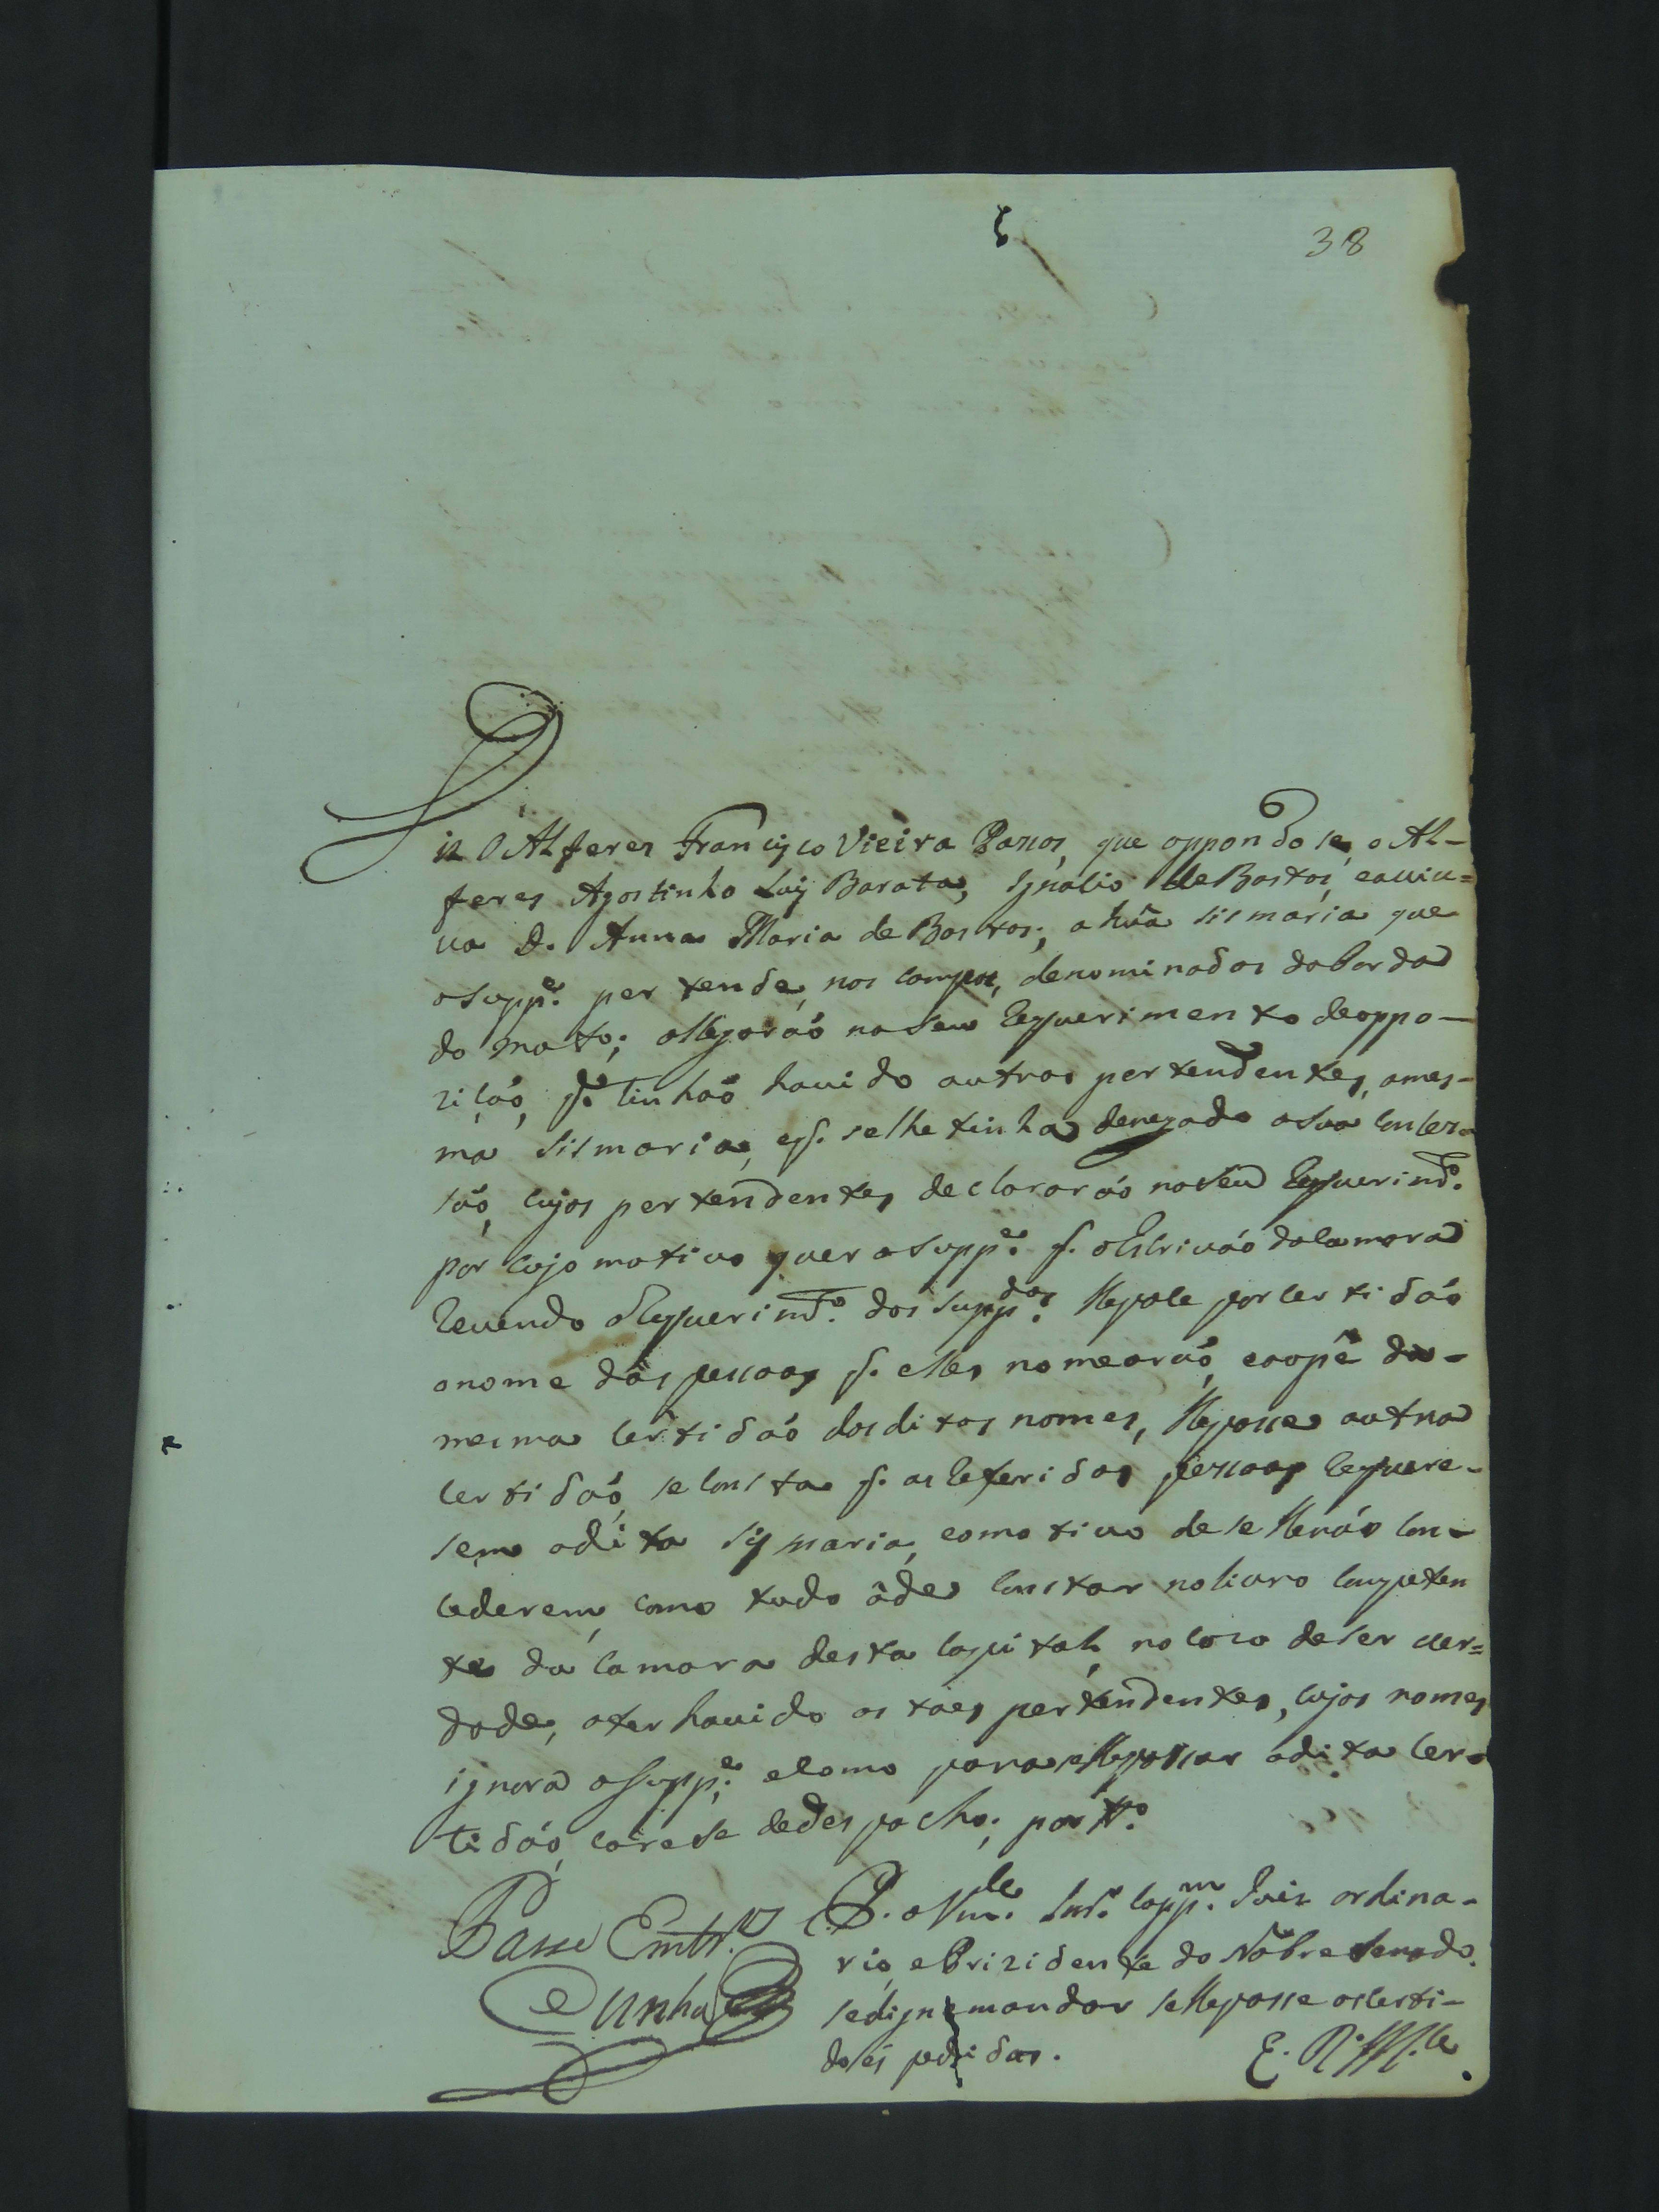 38
Diz O Alferes Francisco Vieira Passos, que oppondo se, o Al-
feres Agostinho Luis Barata, Ignacio de Bastos, eaviu=
va D. Anna Maria de Bastos; a huã sismaria que
o Supp.e pertende, nos campos, denominados da borda
do mato; allegaraõ no seu requerimento de oppo-
ziçaõ, q. tinhaõ havido outros pertendentes, a mes-
ma sismaria, e q. se lhe tinha denegado a sua conces-
saõ, cujos pertendentes declararaõ no seu requerim.to
por cujo motivo quer o Supp.e q. o Escrivaõ da Camara
revendo o requerim.to dos Supp.dos lhe pace por certidaõ
o nome das pessoas q. elles nomearaõ, e ao pê da-
mesma certidaõ dos ditos nomes, lhe passe outra
certidaõ, se consta q. as referidas pessoas requere-
sem a dita sismaria, e o motivo de se lhe naõ con-
cederem, como tudo âde constar no livro competen
te da Camara desta Capital, no cazo de ser ver=
dade, o ter havido os taes pertendentes, cujos nomes
ignora o Supp.e, e como para se lhe passar a dita cer-
tidaõ, carese de despacho; por t.o
P. a Vm.ce Snr. Cap.m Juiz ordina-
rio, e Prizidente do Nobre Senado.
se digne mandar se lhe passe as certi-
does pedidas.
E. R. M.ce
Passe Em tr.os
Cunha